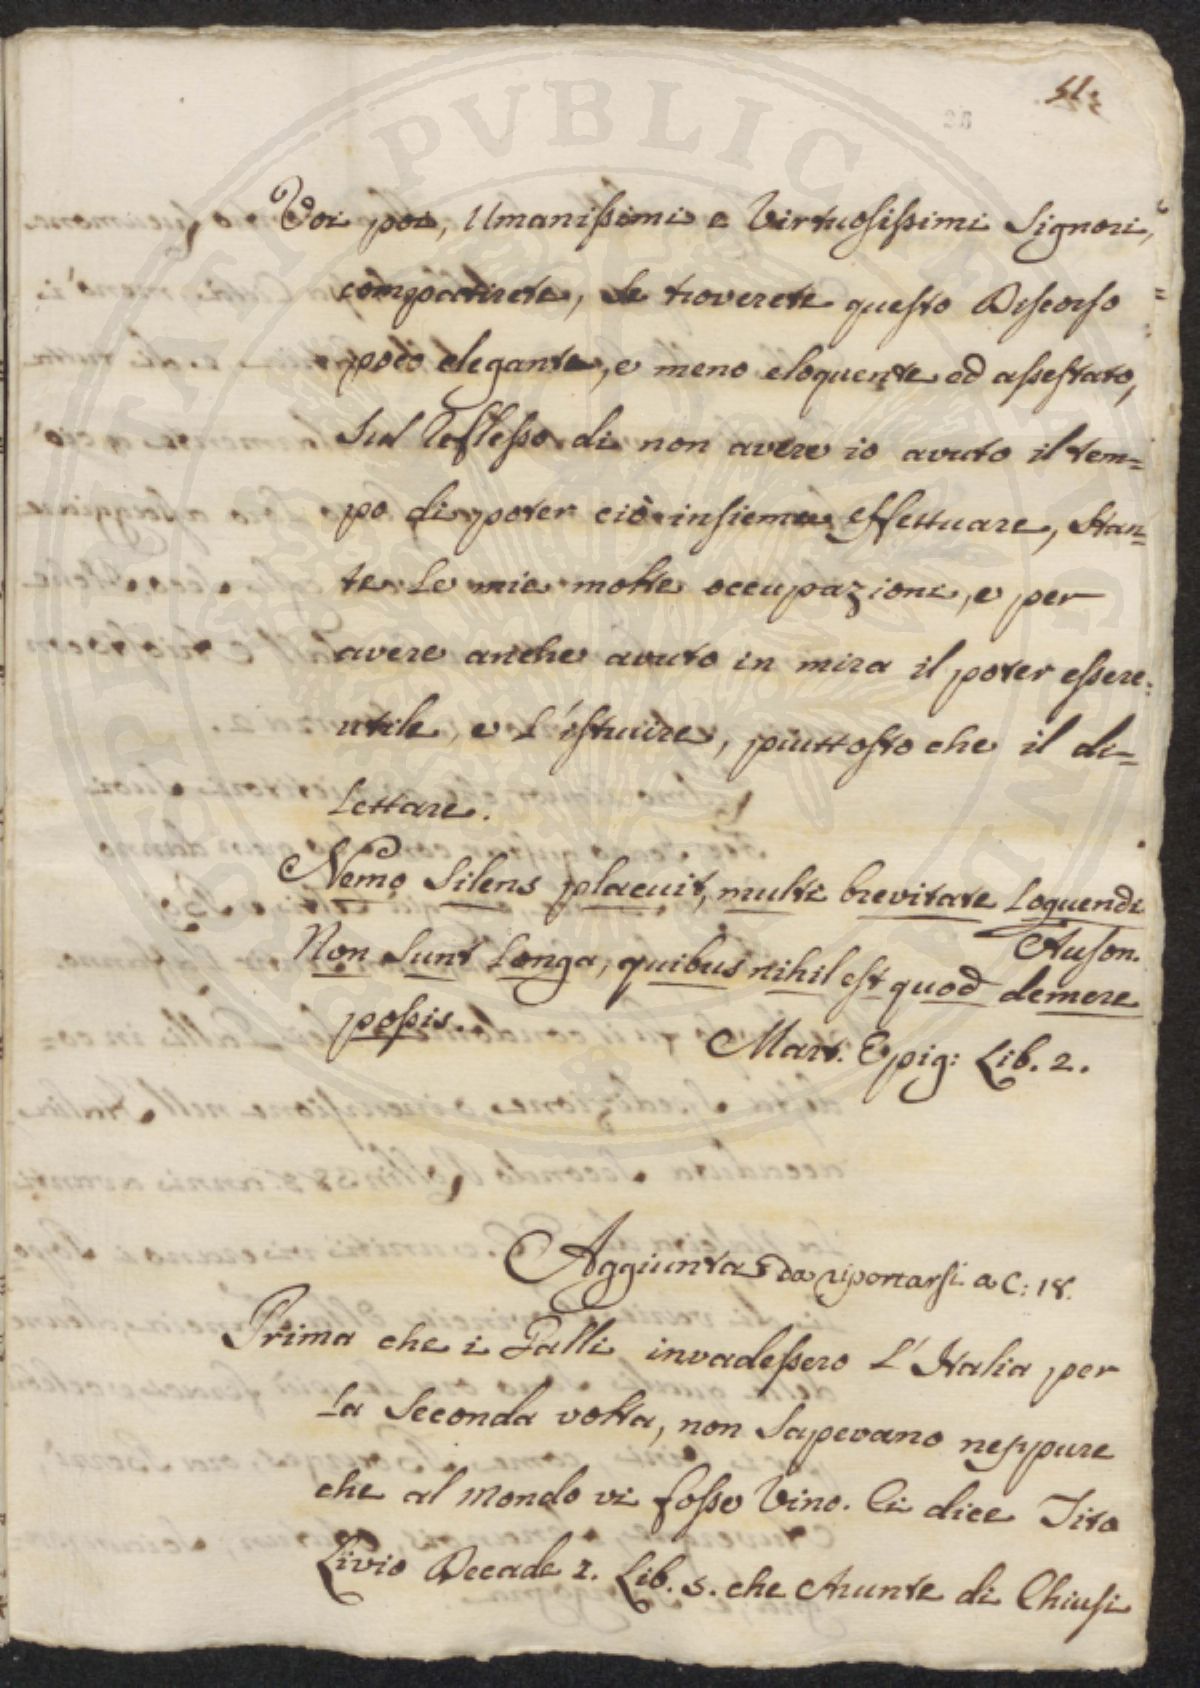 51:
28
Voi poi, Umanissimi e Virtuosissimi Signori,
compatirete, se troverete questo Discorso
poco elegante, e meno eloquente ed assestato,
sul Reflesso di non avere io avuto il tem=
po di poter ciò insieme effettuare, stan=
te le mie molte occupazioni, e per
avere anche avuto in mira il poter essere
utile, e l'istruire, piuttosto che il di=
lettare.
Nemo silens placuit, multi brevitate loquendi
Auson.
Non sunt longa, quibus nihil est quod demere
possis.
Mart. Epig: Lib. 2.
Aggiunta da riportarsi a C: 18.
Prima che i Galli invadessero l'Italia per
la seconda volta, non sapevano neppure
che al mondo vi fosse Vino. Ci dice Tito
Livio Decade 1. Lib. 5. che Arunte di Chiusi